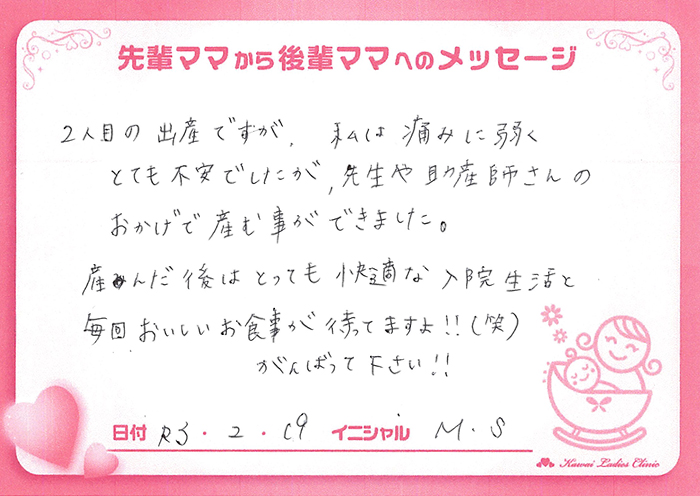 先輩ママから後輩ママへのメッセージ
2人目の出産ですが、私は痛みに弱く
とても不安でしたが、先生や助産師さんの
おかげで産む事ができました。
産んだ後はとっても快適な入院生活と
毎回おいしいお食事が待ってますよ!!(笑)
がんばって下さい!!
日付 R3・2・19 イニシャル M・S
Kawai Ladies Clinic